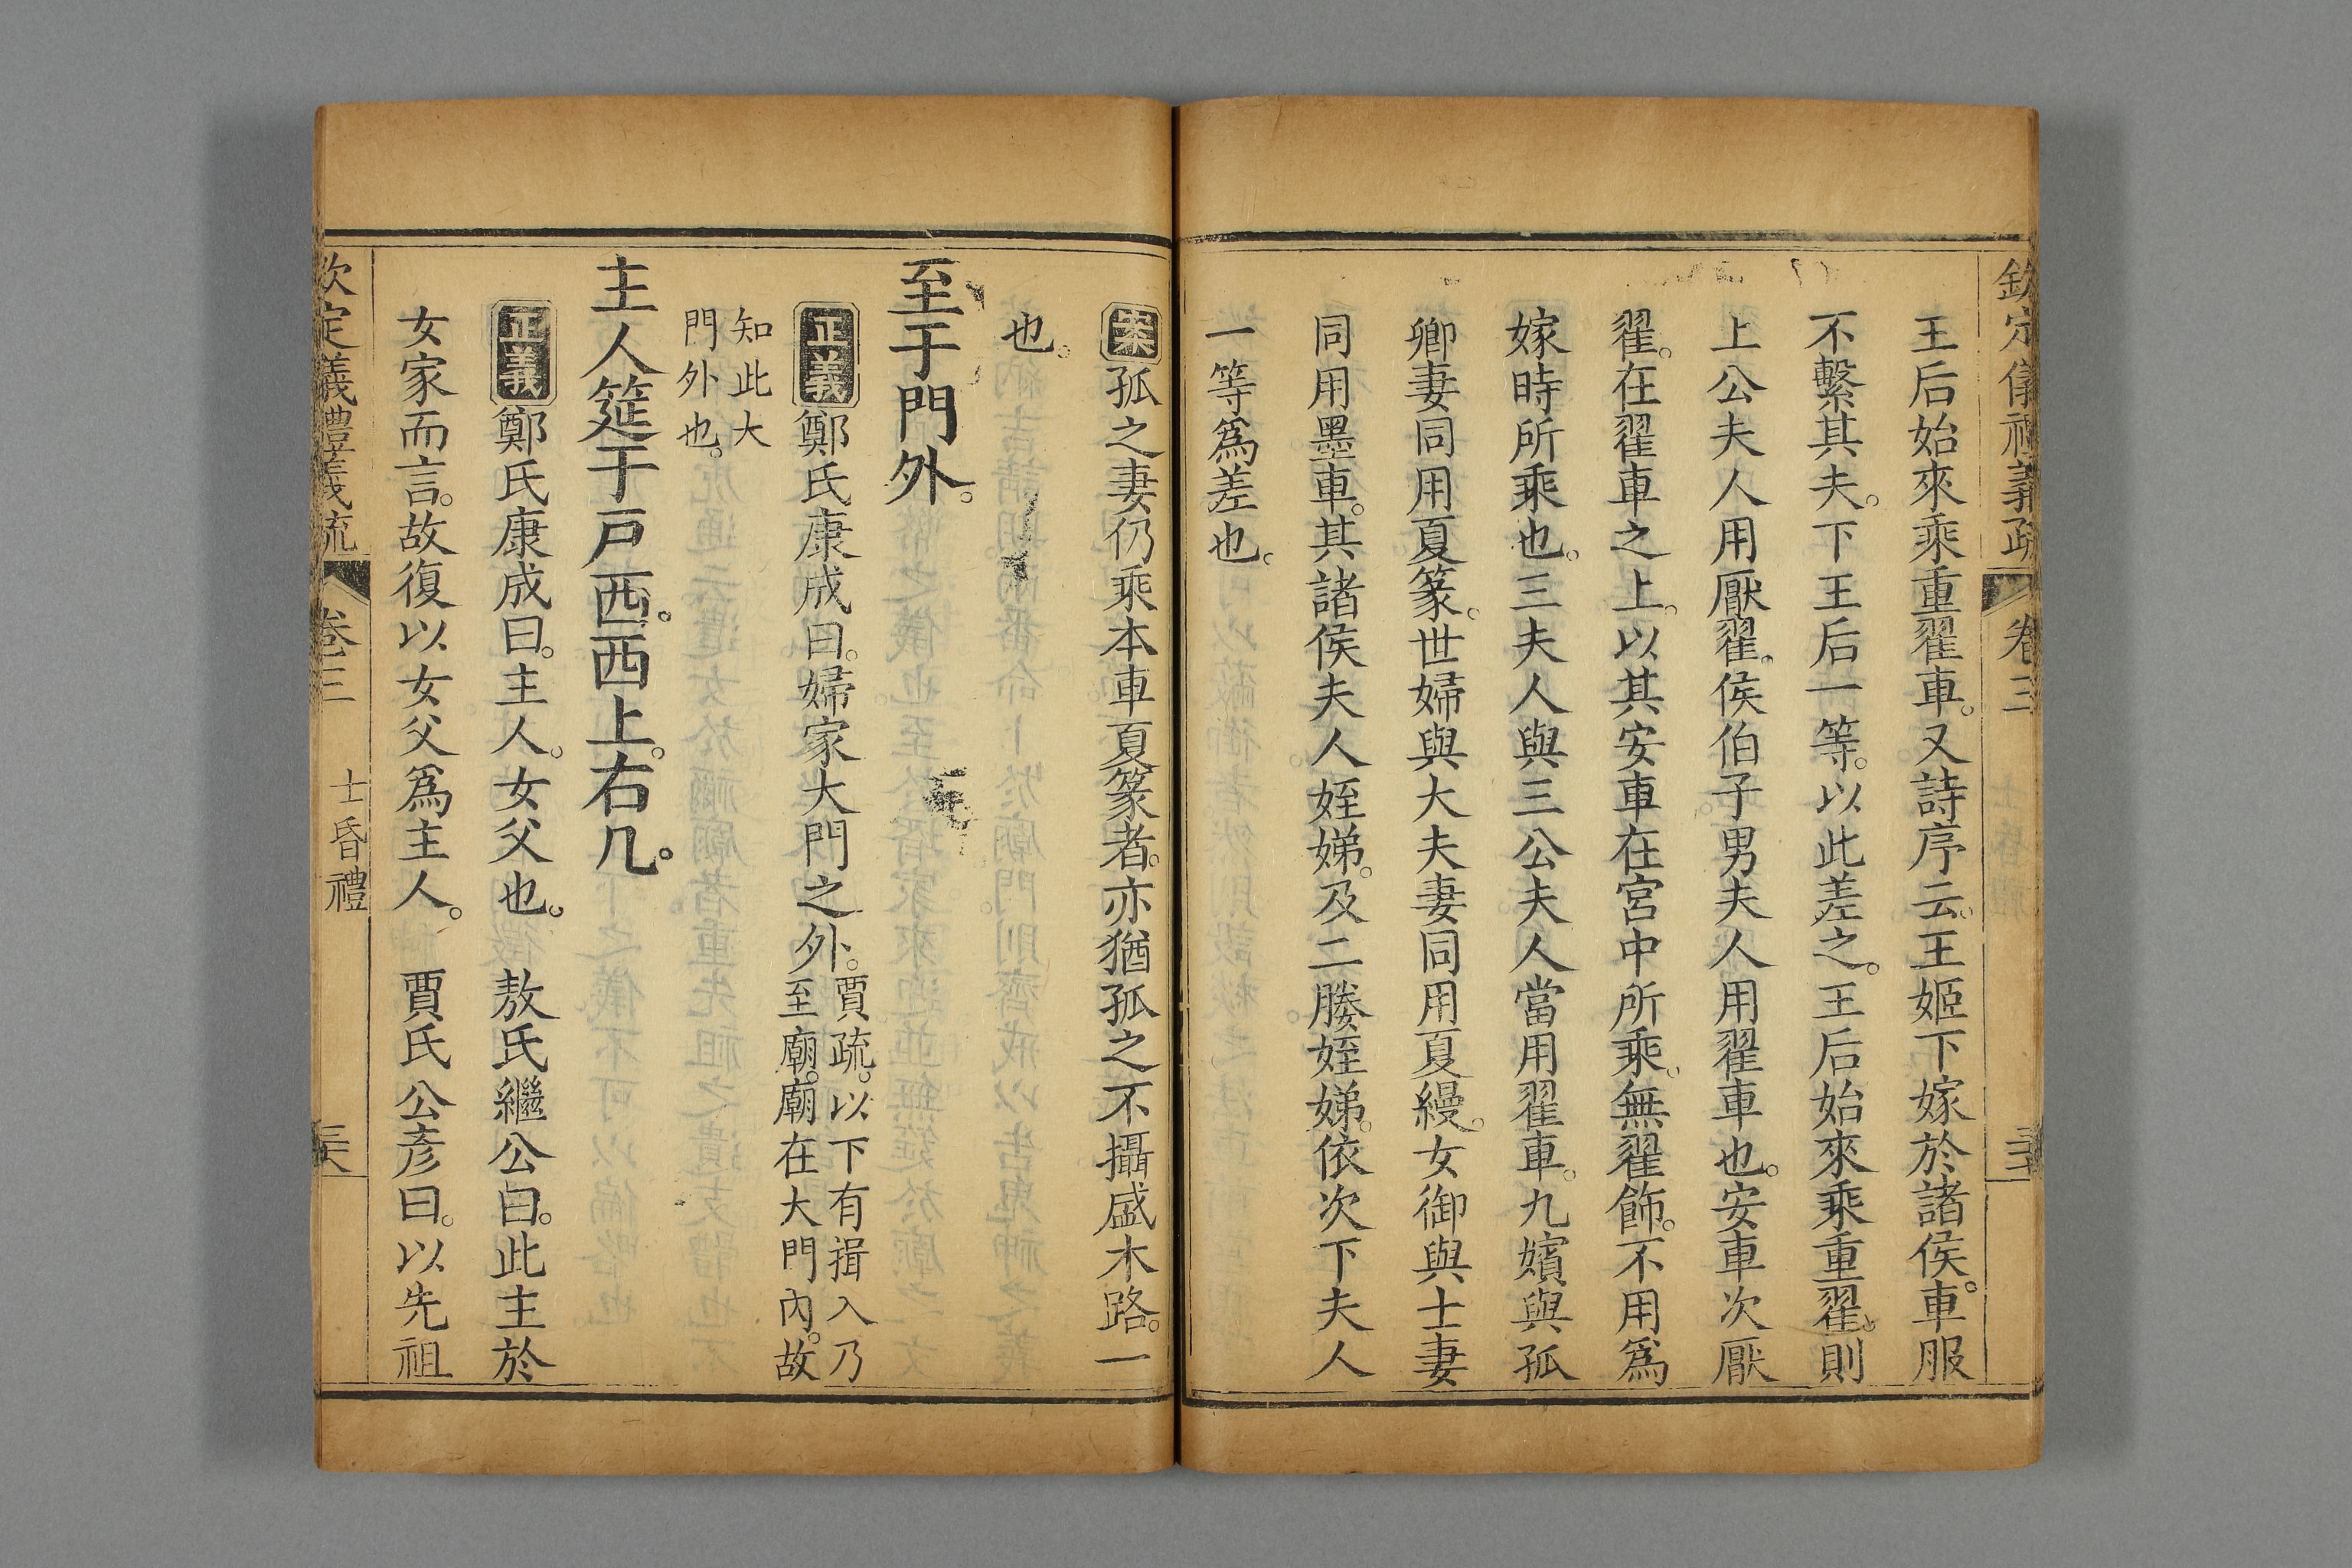 欽定儀禮義疏 卷三
王后始來乘重翟車。又詩序云。王姬下嫁於諸侯。車服
不繫其夫。下王后一等。以此差之。王后始來乘重翟。則
上公夫人用厭翟。侯伯子男夫人用翟車也。安車次厭
翟。在翟車之上。以其安車在宮中所乘。無翟飾。不用爲
嫁時所乘也。三夫人與三公夫人當用翟車。九嬪與孤
卿妻同用夏篆。世婦與大夫妻同用夏縵。女御與士妻
同用墨車。其諸侯夫人姪娣。及二媵姪娣。依次下夫人
一等爲差也。
案孤之妻仍乘本車夏篆者。亦猶孤之不攝盛木路。一
也。
至于門外。
正義鄭氏康成曰。婦家大門之外。賈疏。以下有揖入乃
至廟。廟在大門內。故
知此大
門外也。
主人筵于戶西。西上。右几。
正義鄭氏康成曰。主人。女父也。 敖氏繼公曰。此主於
女家而言。故復以女父爲主人。 賈氏公彥曰。以先祖
欽定儀禮義疏 卷三 士昏禮